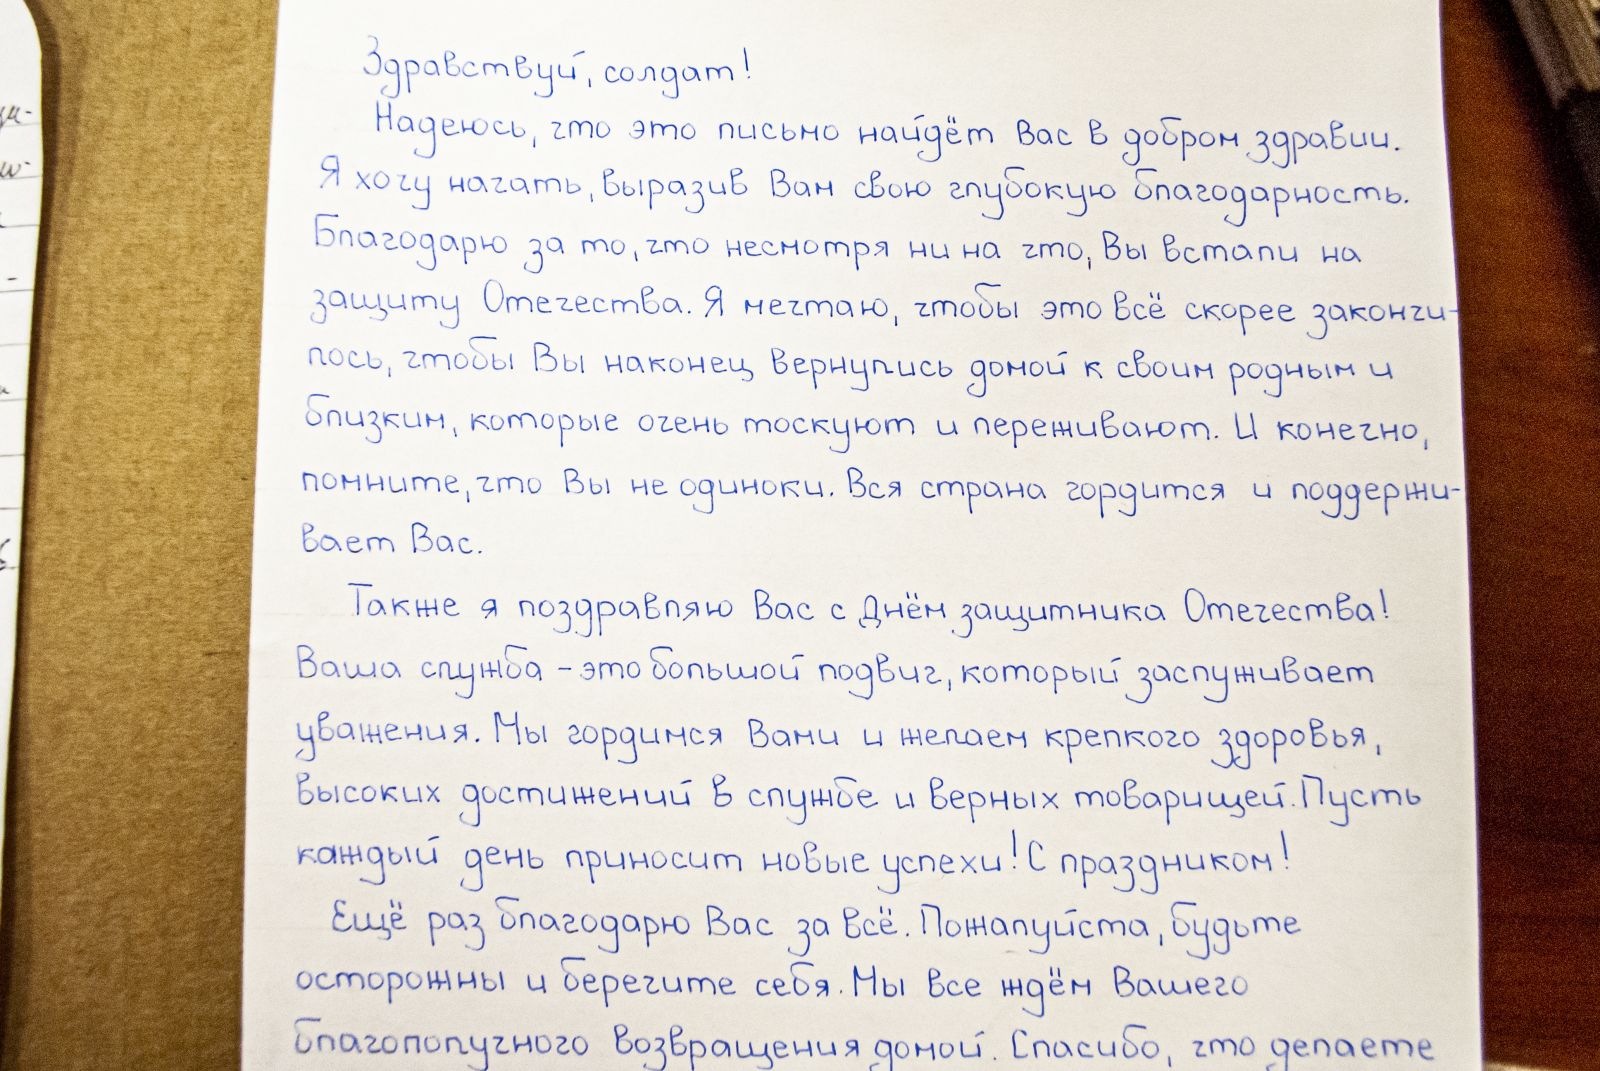 Здравствуй, солдат!
Надеюсь, что это письмо найдёт Вас в добром здравии.
Я хочу начать, выразив Вам свою глубокую благодарность.
Благодарю за то, что несмотря ни на что, Вы встали на
защиту Отечества. Я мечтаю, чтобы это всё скорее закончи-
лось, чтобы Вы наконец вернулись домой к своим родным и
близким, которые очень тоскуют и переживают. И конечно,
помните, что Вы не одиноки. Вся страна гордится и поддержи-
вает Вас.
Также я поздравляю Вас с Днём защитника Отечества!
Ваша служба - это большой подвиг, который заслуживает
уважения. Мы гордимся Вами и желаем крепкого здоровья,
высоких достижений в службе и верных товарищей. Пусть
каждый день приносит новые успехи! С праздником!
Ещё раз благодарю Вас за всё. Пожалуйста, будьте
осторожны и берегите себя. Мы все ждём Вашего
благополучного возвращения домой. Спасибо, что делаете